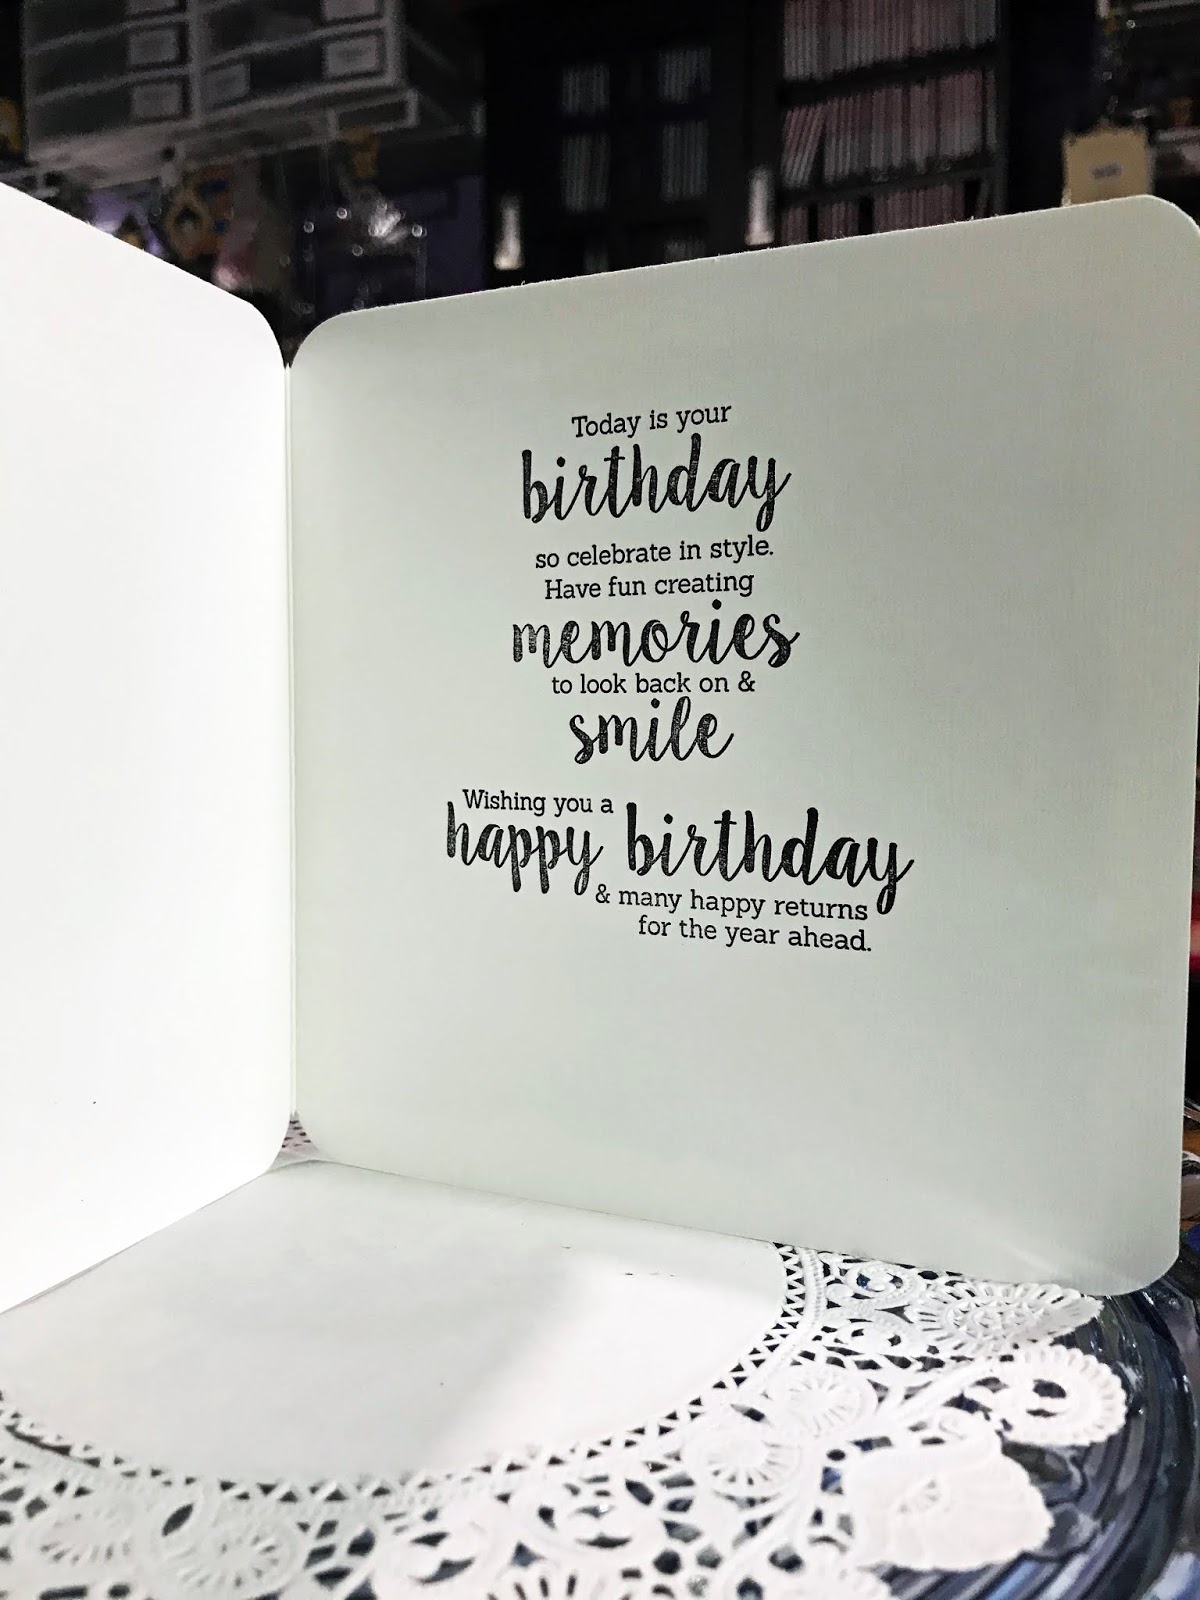 Today is your
birthday
so celebrate in style.
Have fun creating
memories
to look back on &
smile
Wishing you a
happy birthday
& many happy returns
for the year ahead.